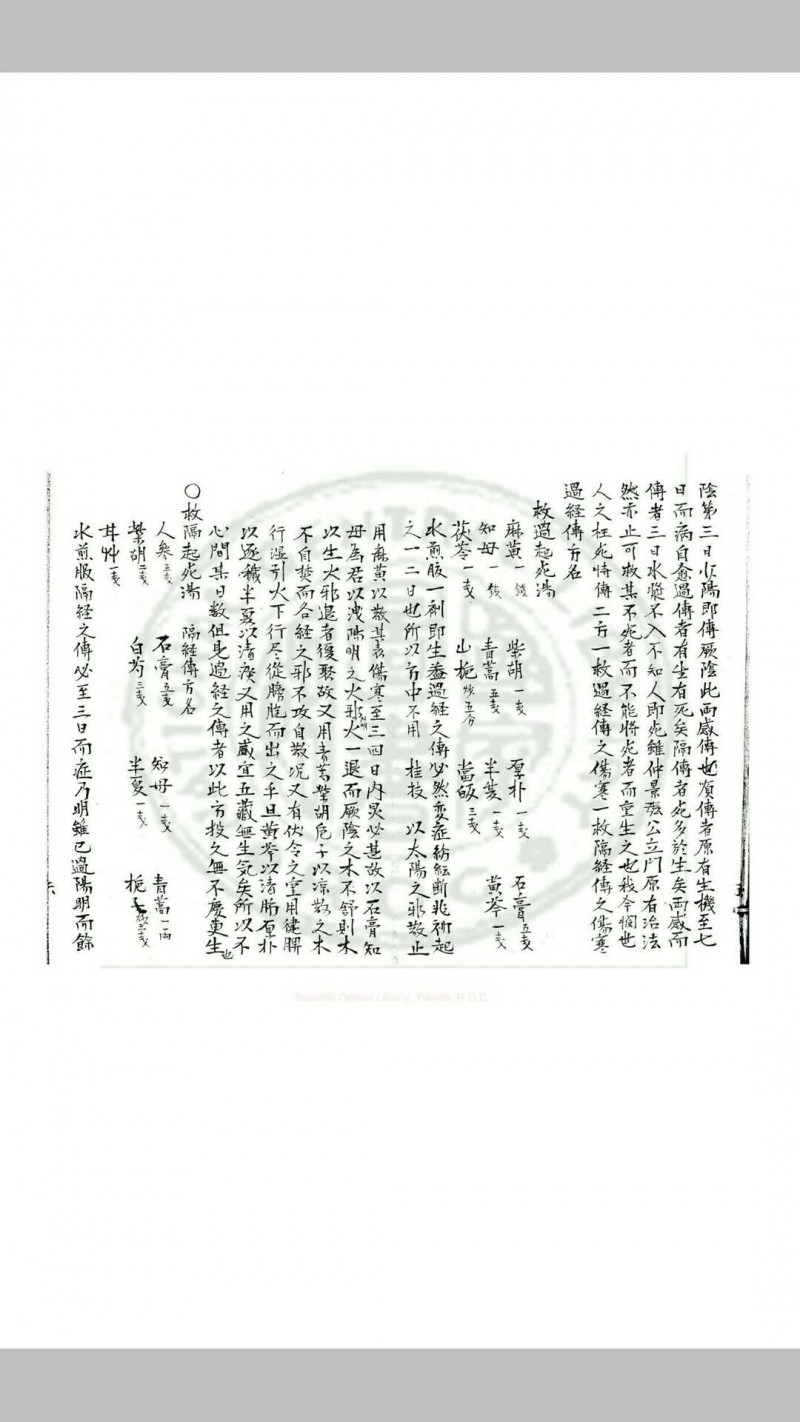 陰第三日少陽即傳厥陰此兩感傳也順傳者原有生機至七
日而病自愈過傳者有生有死矣隔傳者死多於生矣兩感而
傳者三日水漿不入不知人即死雖仲景張公立門原有治法
然亦止可救其不死者而不能將死者而重生之也我今憫世
人之枉死特傳二方一救過經傳之傷寒一救隔經傳之傷寒
過經傳方名
救過起死湯
麻黃一錢 柴胡一戔 厚朴一戔 石膏五戔
知母一錢 青蒿五戔 半夏一戔 黃芩一戔
茯苓一戔 山梔炒五分 當皈三戔
水煎服一剂即生蓋過經之傳必然变症紛紜断非初起
之一二日也所以方中不用桂枝 以太陽之邪散止
用麻黃以散其表傷寒至三四日内炅必甚故以石膏知
母為君以洩陽明之火邪火一退而厥陰之木不舒則木
以生火邪退者復聚故又用青蒿柴胡危子以凉散之木
不自焚而各經之邪不攻自散况又有伏令之 用健脾
行湿引火下行尽從膀胱而出之乎且黃芩以清肺厚朴
以逐穢半夏以清痰又用之咸宜五藏無生気矣所以不
心問某日数但見過經之傳者以此方投之無不慶更生也
○救隔起死湯 隔經傳方名
人參五戔 石膏五戔 知母一戔 青蒿一両
柴胡二戔 白芍三戔 半夏一戔 梔子炒三戔
甘艸一戔
水煎服隔經之傳必至三日而症乃明雖已過陽明而餘
National Central Library, Taiwan, R.O.C